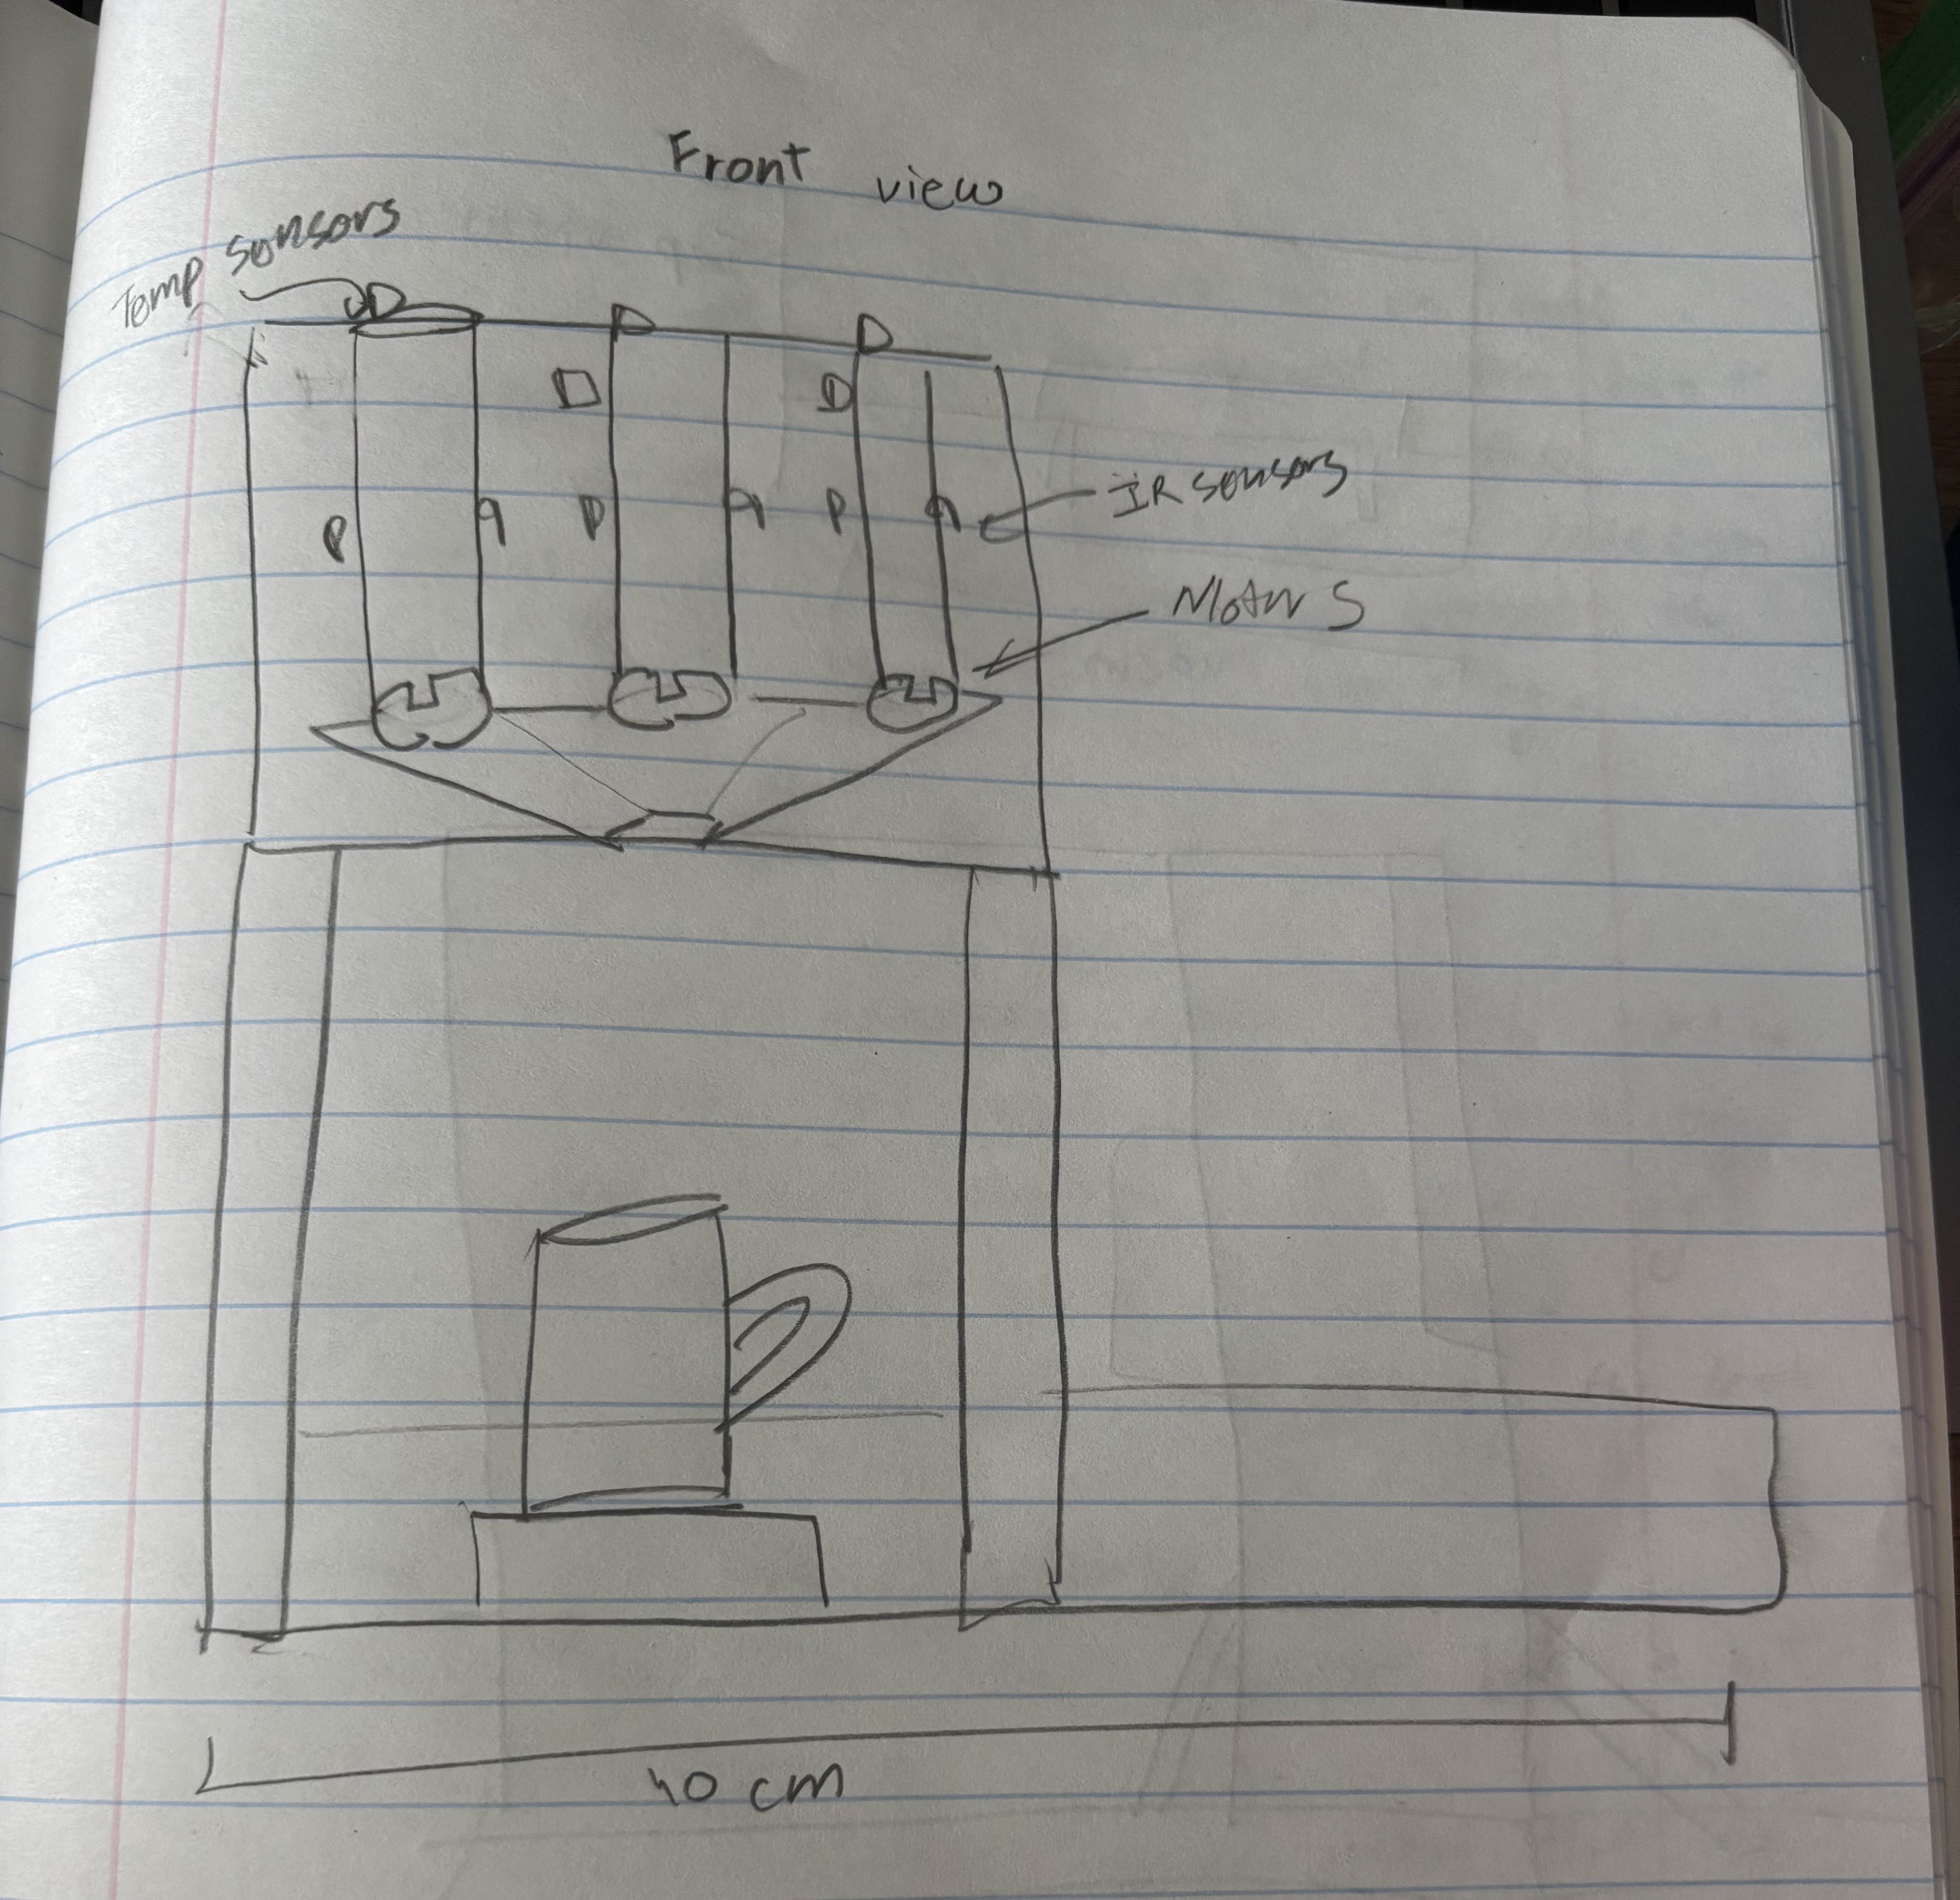 Front view
Temp sensors
IR sensors
Motors
40 cm